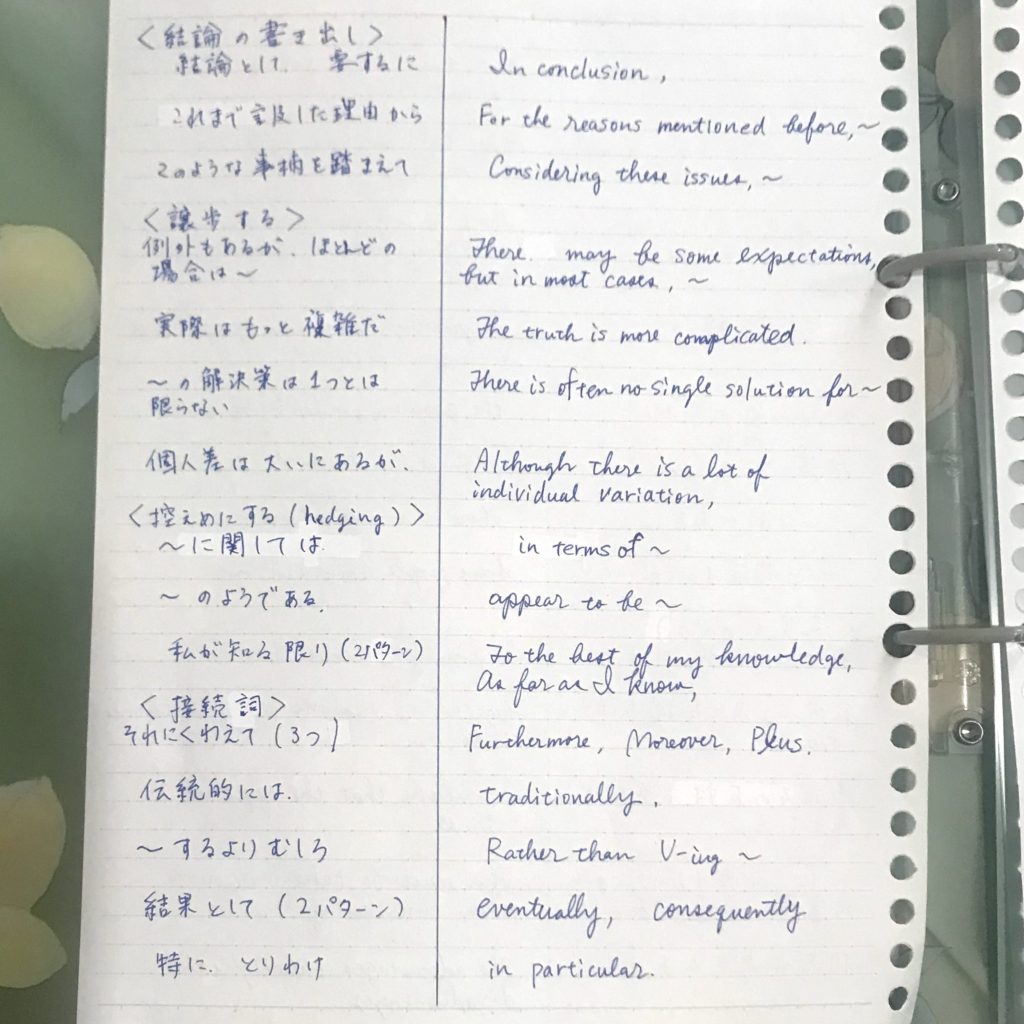 ＜結論の書き出し＞
結論として、要するに
In conclusion,
これまで言及した理由から
For the reasons mentioned before,～
このような事柄を踏まえて
Considering these issues,～
＜譲歩する＞
例外もあるが、ほとんどの
場合は～
There may be some expectations,
but in most cases, ～
実際はもっと複雑だ
The truth is more complicated.
～の解決策は1つとは
限らない
There is often no single solution for～
個人差は大いにあるが、
Although there is a lot of
individual variation,
＜控えめにする(hedging)＞
～に関しては
in terms of ～
～のようである.
appear to be ～
私が知る限り(2パターン)
To the best of my knowledge,
As far as I know,
＜接続詞＞
それにくわえて(3つ)
Furthermore, Moreover, Plus.
伝統的には.
traditionally.
～するよりむしろ
Rather than V-ing ～
結果として(2パターン)
eventually, consequently
特に.とりわけ
in particular.